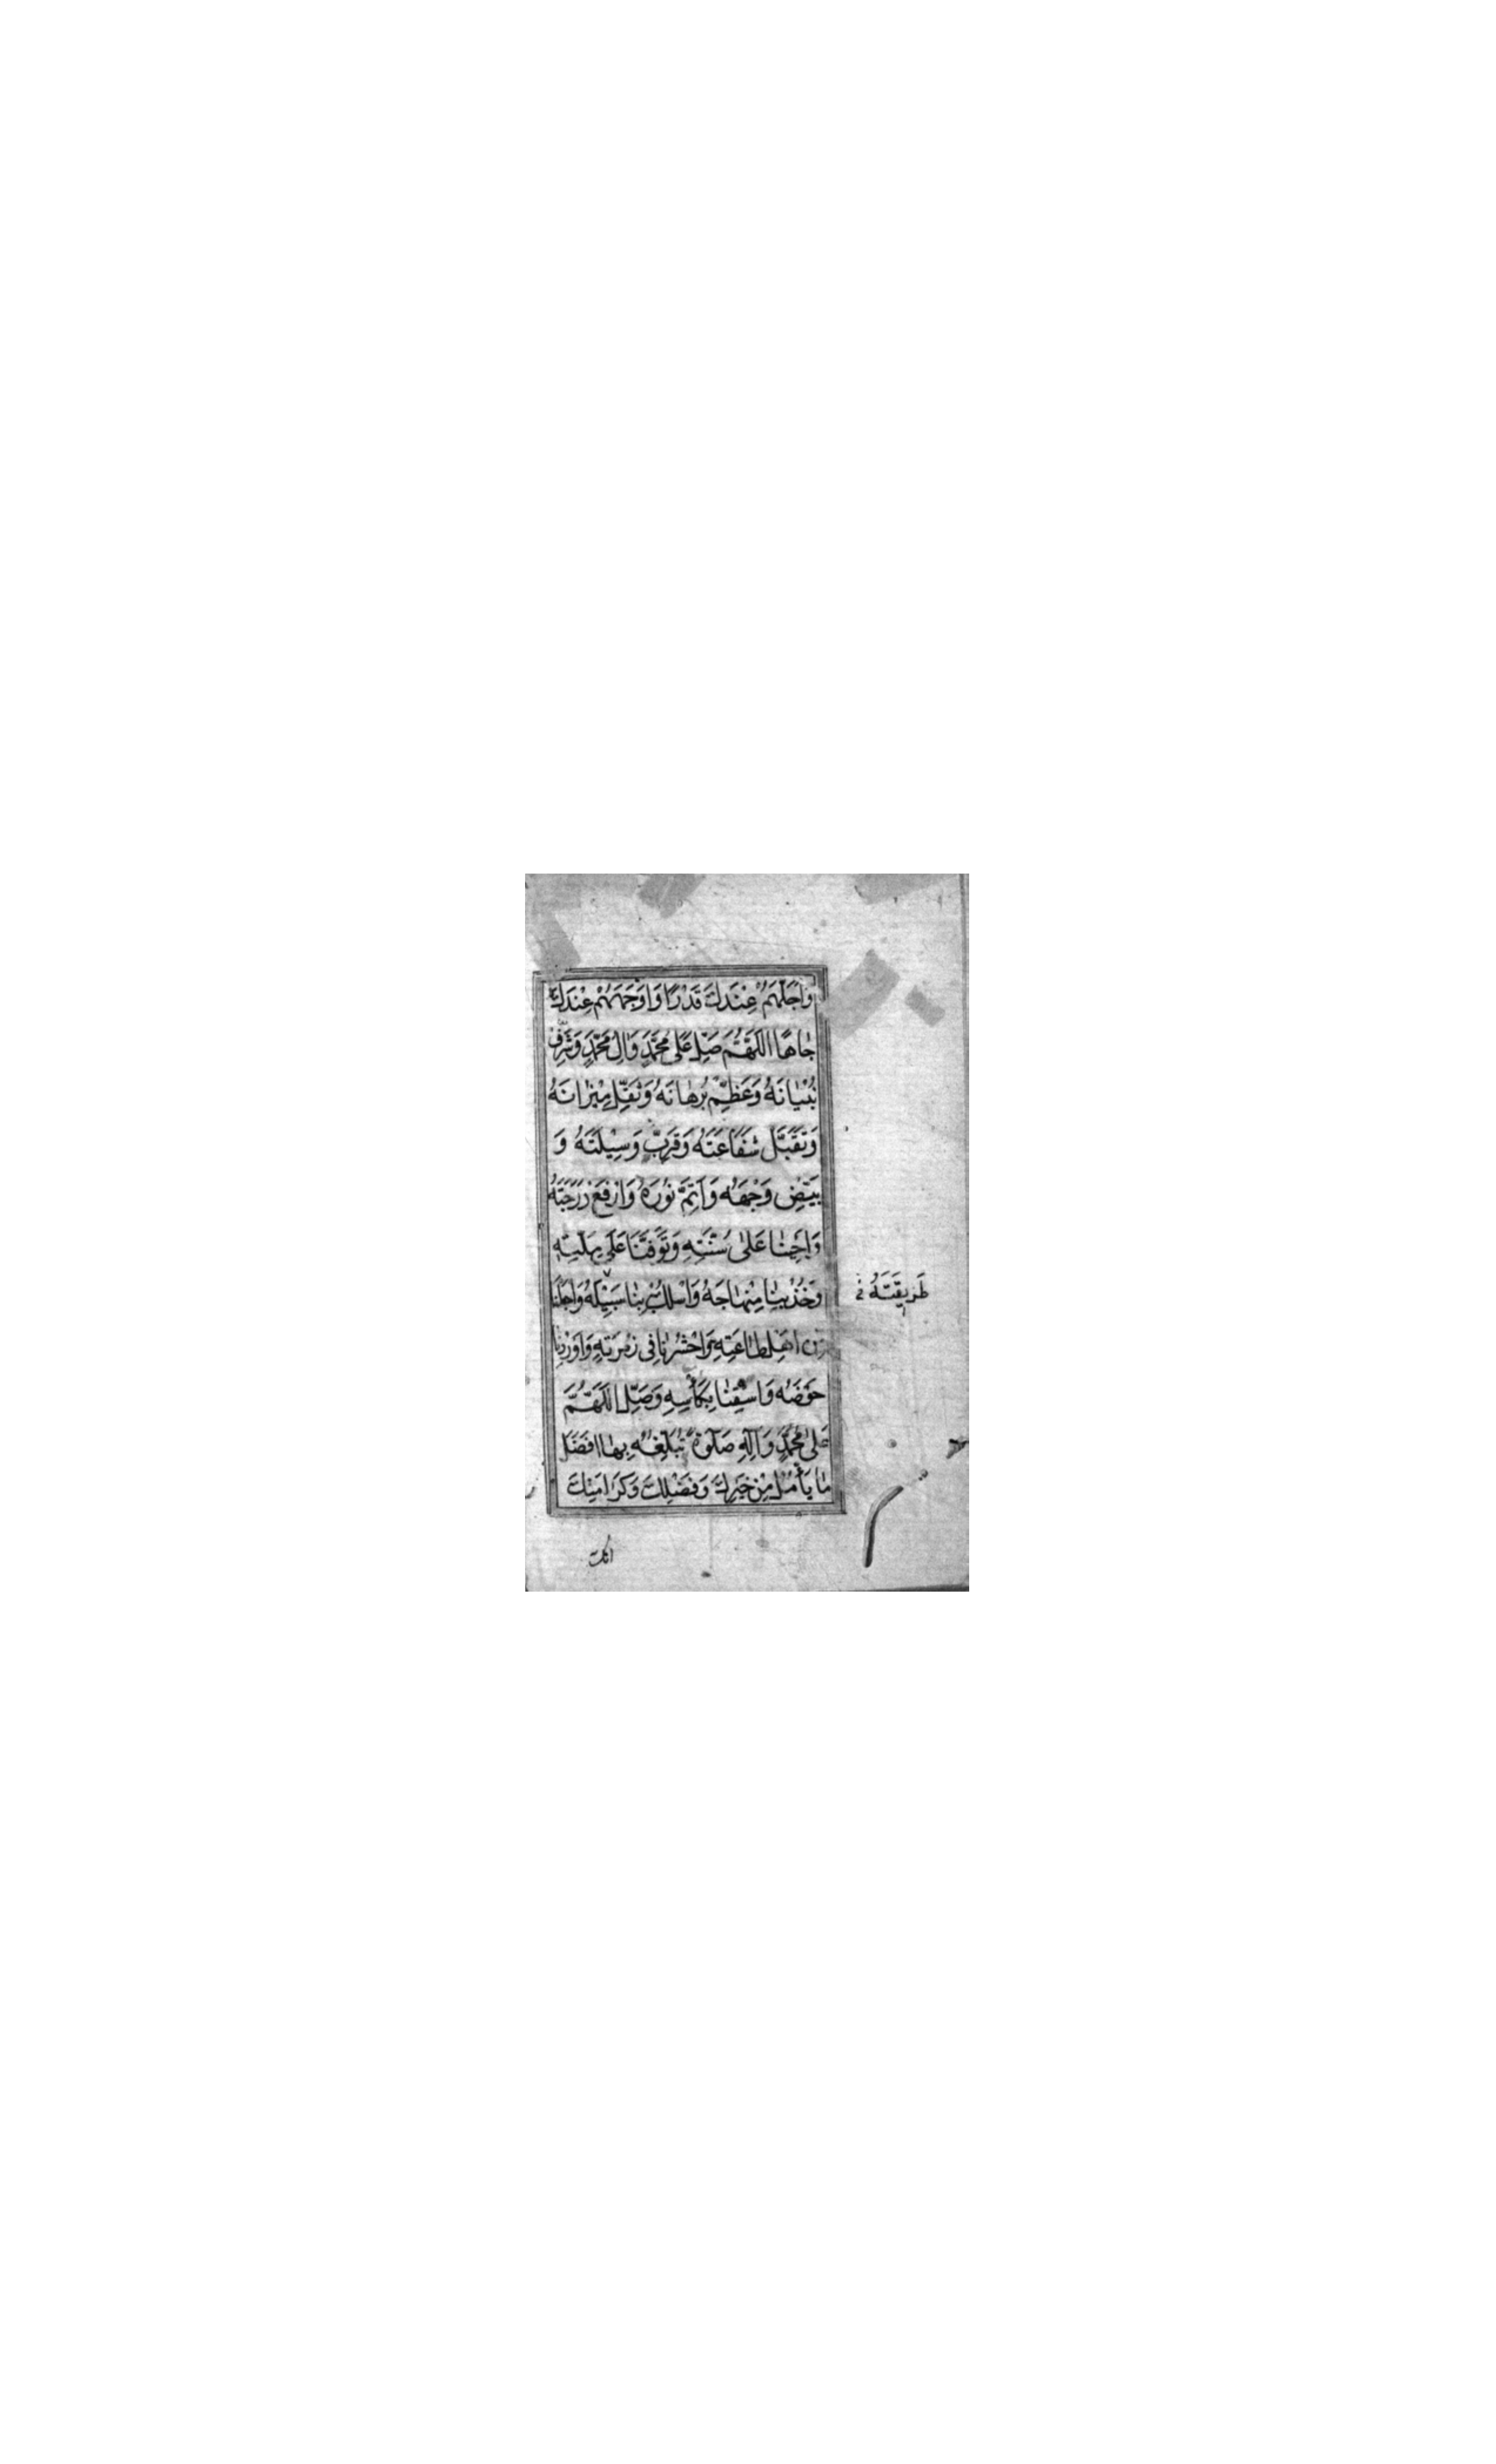 وَاَجَلَّهُمْ عِنْدَكَ قَدْرًا وَاَوْجَهَهُمْ عِنْدَكَ
جٰاهًا اَللّٰهُمَّ صَلِّ عَلٰى مُحَمَّدٍ وَاٰلِ مُحَمَّدٍ وَشَرِّفْ
بُنْيٰانَهُ وَعَظِّمْ بُرْهٰانَهُ وَثَقِّلْ مِيْزٰانَهُ
وَتَقَبَّلْ شَفَاعَتَهُ وَقَرِّبْ وَسِيْلَتَهُ وَ
بَيِّضْ وَجْهَهُ وَاَتِمَّ نُوْرَهُ وَارْفَعْ دَرَجَتَهُ
وَاَحْيِنٰا عَلٰى سُنَّتِهِ وَتَوَفَّنَا عَلٰى مِلَّتِهِ
وَخُذْ بِنٰا مِنْهٰاجَهُ وَاسْلُكْ بِنٰا سَبِيْلَهُ وَاجْعَلْنٰا
طَرِيقَتَهُ خ
مِنْ اَهْلِ طٰاعَتِهِ وَاحْشُرْنٰا فِى زُمْرَتِهِ وَاَوْرِدْنٰا
حَوْضَهُ وَاسْقِنٰا بِكَأْسِهِ وَصَلِّ اللّٰهُمَّ
عَلٰى مُحَمَّدٍ وَاٰلِهِ صَلٰوةً تُبَلِّغُهُ بِهٰا اَفْضَلَ
مٰا يَأْمُلُ مِنْ خَيْرِكَ وَفَضْلِكَ وَكَرَامَتِكَ
انك